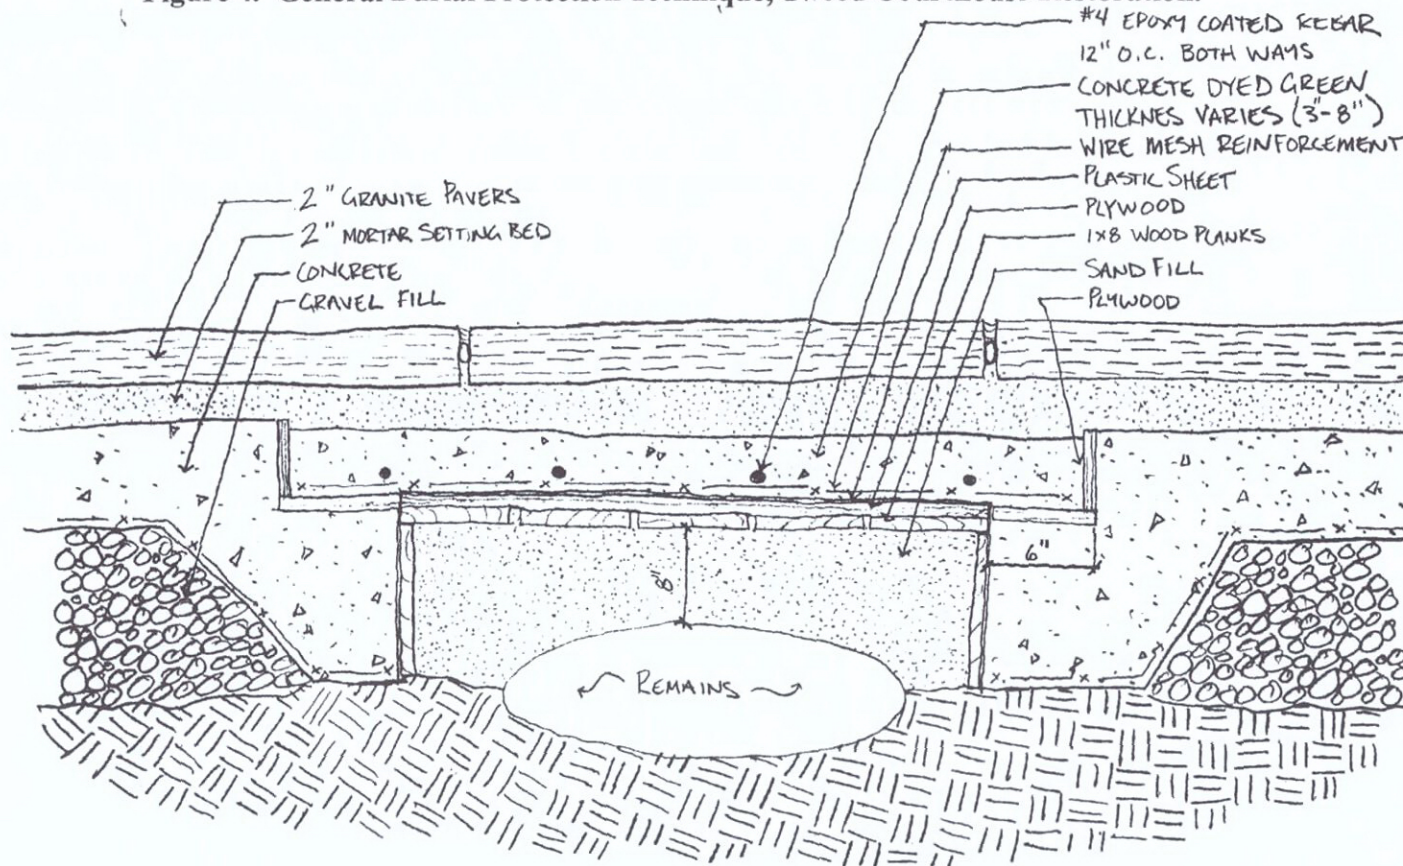 #4 EPOXY COATED REBAR
12" O.C. BOTH WAYS
CONCRETE DYED GREEN
THICKNES VARIES (3"-8")
WIRE MESH REINFORCEMENT
PLASTIC SHEET
PLYWOOD
1x8 WOOD PLANKS
SAND FILL
PLYWOOD
2" GRANITE PAVERS
2" MORTAR SETTING BED
CONCRETE
GRAVEL FILL
6"
8"
REMAINS